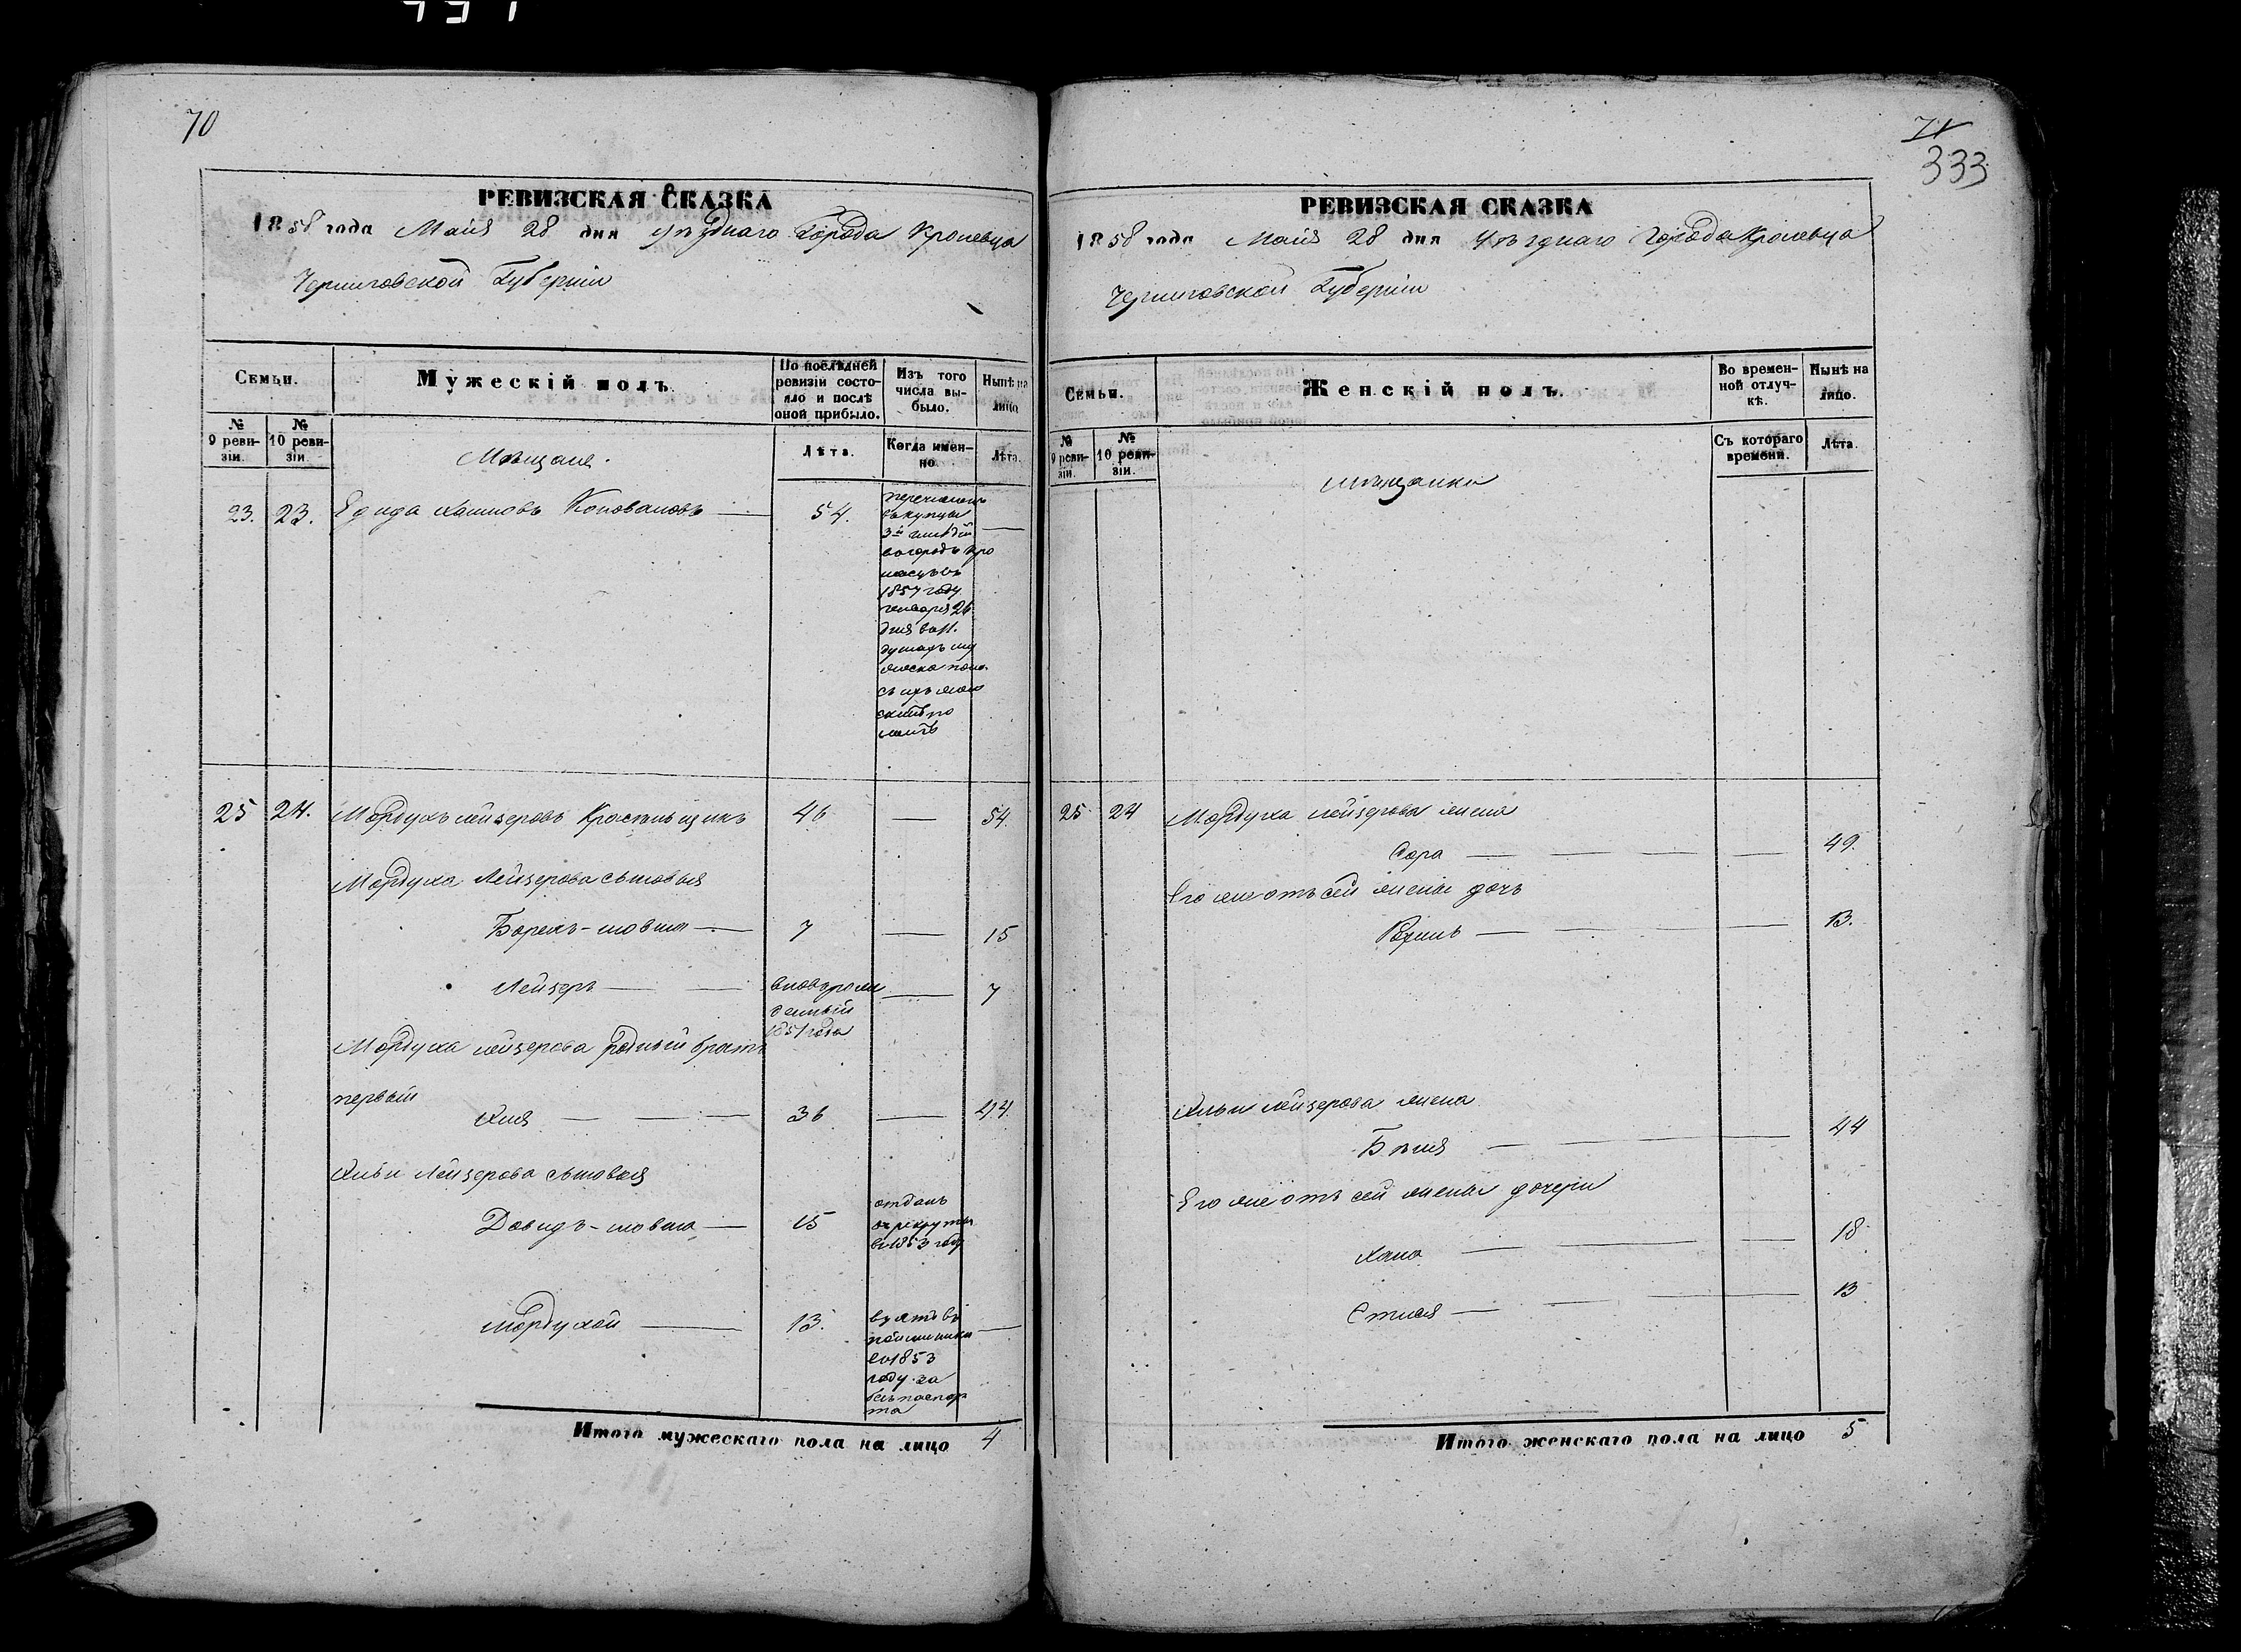 70
РЕВИЗСКАЯ СКАЗКА
1858 года Майя 28 дня уѣзднаго Города Кролевца
Черниговской Губерніи
Семьи.
Мужескій полъ.
По послѣдней ревизіи состояло и послѣ оной прибыло.
Изъ того числа выбыло.
Нынѣ на лицо
№ 9 ревизіи.
№ 10 ревизіи.
Мѣщане.
Лѣта.
Когда именно
Лѣта.
23. 23. Хаимовъ — 54.
3й
1857 году
генваря 26
дня
25 24. Мордухъ Лейзеровъ 46 — 54.
Мордуха Лейзерова сыновья
Борехъ-шовна — 7 — 15
Лейзеръ — — 7
1851 года
Мордуха Лейзерова родный братъ
первый
Хия — — 36 — 44.
Лейзерова сыновья
Довидъ-шовна — 15
отданъ
в рекруты
въ 1853 году
Мордухай — 13. —
взятъ въ
во 1853
году за
безъ паспорта
Итого мужескаго пола на лицо 4
71
333
РЕВИЗСКАЯ СКАЗКА
1858 года Майя 28 дня Уѣзднаго Города Кролевца
Черниговской Губерніи
Семьи.
Женскій полъ.
Во временной отлучкѣ.
Нынѣ на лицо.
№ 9 ревизіи.
№ 10 ревизіи.
мѣщанки
Съ котораго времени.
Лѣта.
25 24 Мордуха Лейзерова жена
Сора — — — — 49.
Его же отъ сей жены дочь
— — — — 13.
Лейзерова жена
Бѣня — — — 44
Его же отъ сей жены дочери
Хана — — — 18
— — — 13
Итого женскаго пола на лицо 5